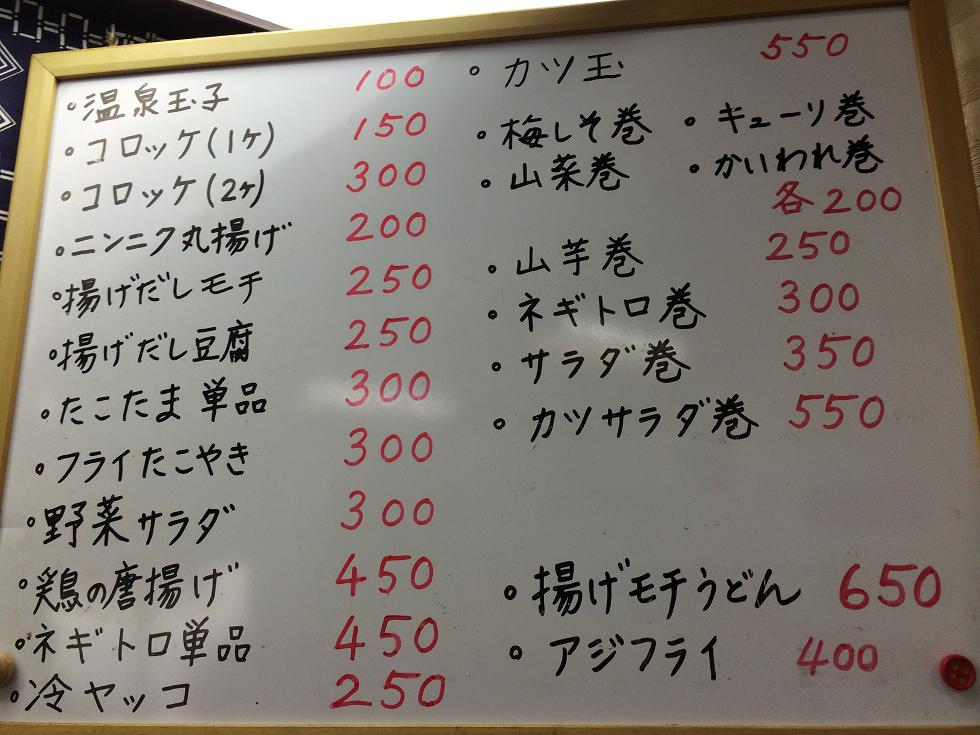 ・温泉玉子 100
・コロッケ(1ヶ) 150
・コロッケ(2ヶ) 300
・ニンニク丸揚げ 200
・揚げだしモチ 250
・揚げだし豆腐 250
・たこたま単品 300
・フライたこやき 300
・野菜サラダ 300
・鶏の唐揚げ 450
・ネギトロ単品 450
・冷ヤッコ 250
・カツ玉 550
・梅しそ巻 ・キューリ巻
・山菜巻 ・かいわれ巻
各200
・山芋巻 250
・ネギトロ巻 300
・サラダ巻 350
・カツサラダ巻 550
・揚げモチうどん 650
・アジフライ 400